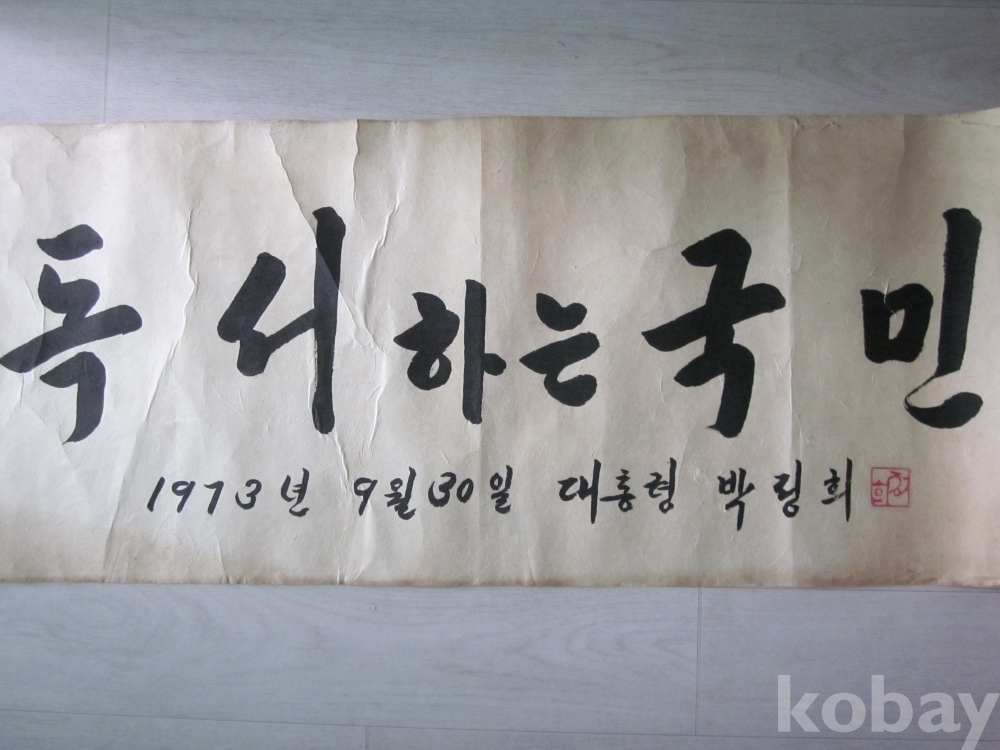 독서하는국민
1973년 9월 30일 대통령 박정희
kobay